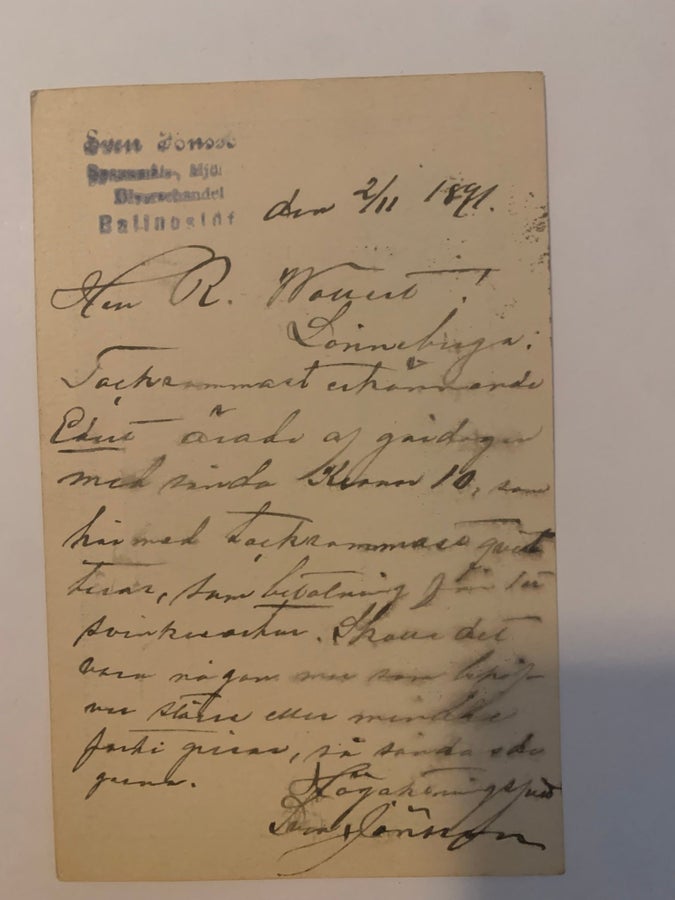 Sven Jönsso
Speceri-, Mjöl
Diversehandel
Ballingslöf
den 2/11 1891.
Herr R. Wouert!
Lönneberga:
Tacksammast erkännande
Edert ärade af gårdagen
med sända Kronor 10, som
här med tacksammast qvit
teras, som betalning för 1 st
. Skulle det
vara någon mer som behöf
ver större eller mindre
, så sända sådana
gerna.
Högaktningsfull
Sven Jönsson